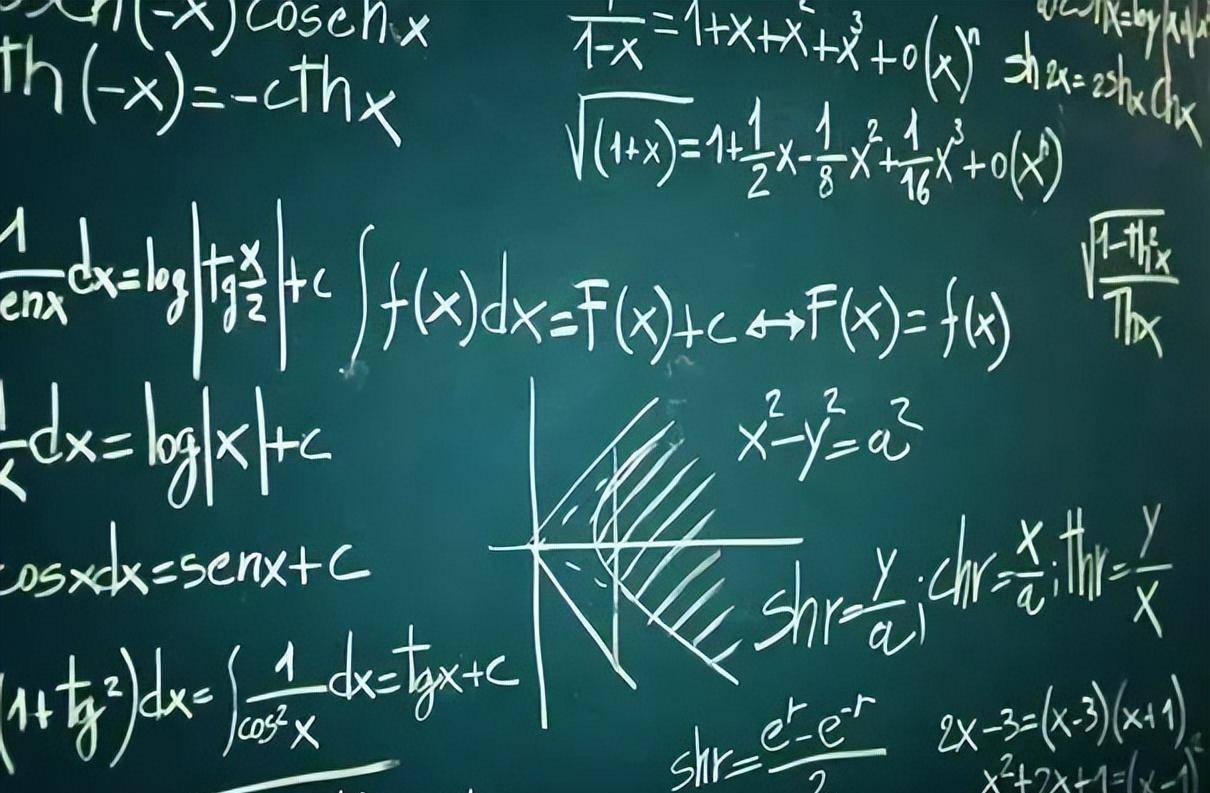 (-x) cosenx
1/(1-x) = 1+x+x²+x³+o(x)ⁿ
th(-x)=-cthx
sh2x=2shxchx
√(1+x)=1+1/2x-1/8x²+1/16x³+o(xⁿ)
1/enx dx=log|tg x/2|+c
∫f(x)dx=F(x)+c↔F(x)=f(x)
√(1-th²x)/Thx
dx=log|x|+c
x²-y²=a²
cosxdx=senx+c
shr=y/a; chr=x/a; thr=y/x
(1+tg²)dx=∫1/cos²x dx=tgx+c
shr=(eʳ-e⁻ʳ)/2
2x-3=(x-3)(x+1)
x²+2x+1=(x-1)²